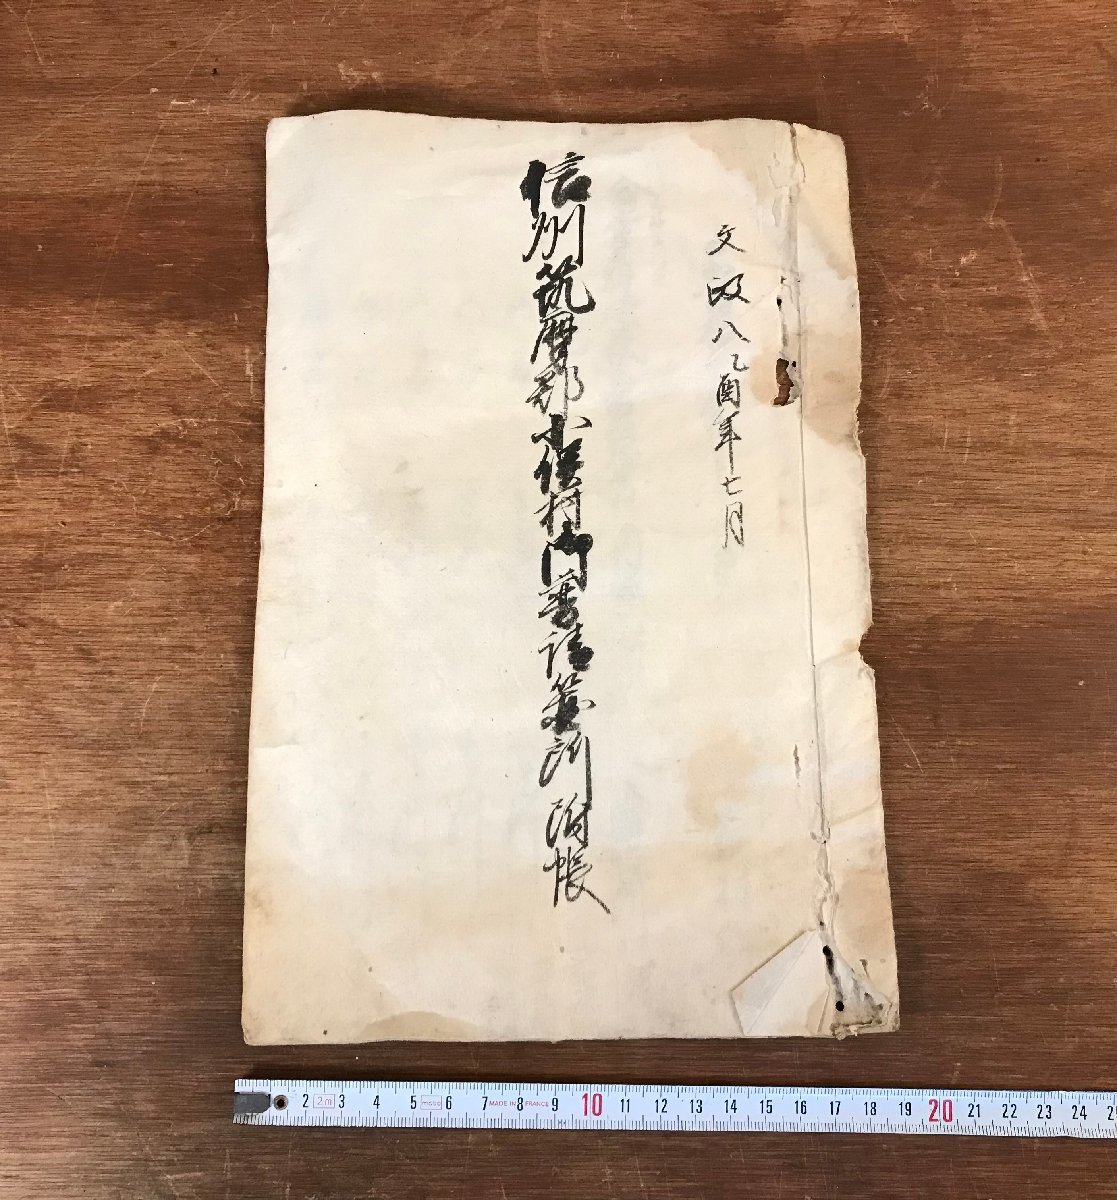 文政八乙酉年七月
信州筑摩郡小俣村御普請箇所附帳
2 2m 3 4 5 6 7 MADE IN FRANCE 8 9 10 11 12 13 14 15 16 17 18 19 20 21 22 23 24